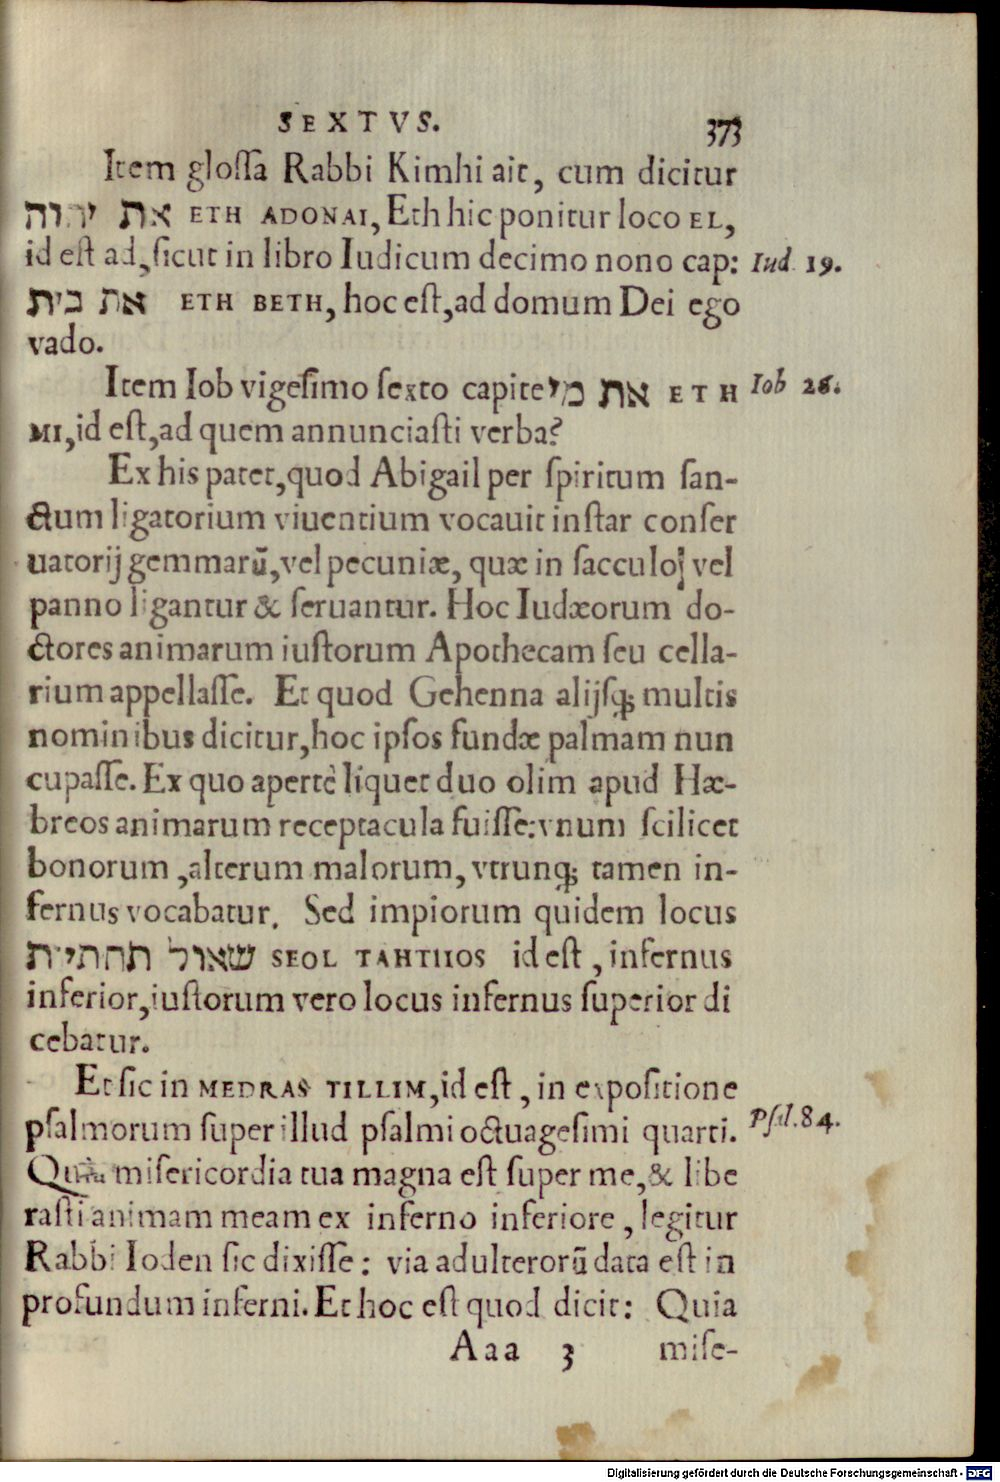 SEXTVS. 373
Item glossa Rabbi Kimhi ait, cum dicitur
את יהוה ETH ADONAI, Eth hic ponitur loco EL,
id est ad, sicut in libro Iudicum decimo nono cap: Iud. 19.
את בית ETH BETH, hoc est, ad domum Dei ego
vado.
Item Iob vigesimo sexto capite את מי ETH Iob 26.
MI, id est, ad quem annunciasti verba?
Ex his patet, quod Abigail per spiritum san-
ctum ligatorium viuentium vocauit instar conser
uatorij gemmarū, vel pecuniæ, quæ in sacculo vel
panno ligantur & seruantur. Hoc Iudæorum do-
ctores animarum iustorum Apothecam seu cella-
rium appellasse. Et quod Gehenna alijsq; multis
nominibus dicitur, hoc ipsos fundæ palmam nun
cupasse. Ex quo apertè liquet duo olim apud Hæ-
breos animarum receptacula fuisse: vnum scilicet
bonorum, alterum malorum, vtrunq; tamen in-
fernus vocabatur. Sed impiorum quidem locus
שאול תחתיית SEOL TAHTIIOS id est, infernus
inferior, iustorum vero locus infernus superior di
cebatur.
Et sic in MEDRAS TILLIM, id est, in expositione
psalmorum super illud psalmi octuagesimi quarti. Psal. 84.
Quia misericordia tua magna est super me, & libe
rasti animam meam ex inferno inferiore, legitur
Rabbi Ioden sic dixisse: via adulterorū data est in
profundum inferni. Et hoc est quod dicit: Quia
Aaa 3 mise-
Digitalisierung gefördert durch die Deutsche Forschungsgemeinschaft - DFG